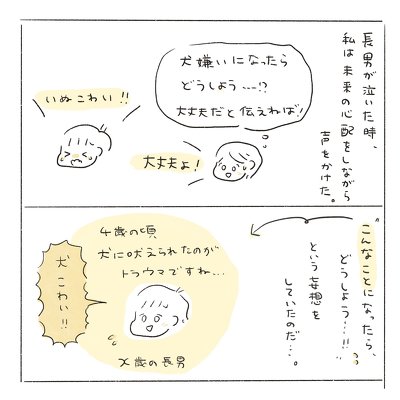 長男が泣いた時、
私は未来の心配をしながら
声をかけた。
犬嫌いになったら
どうしよう…!?
大丈夫だと伝えねば!
大丈夫よ!
いぬこわい!!
こんなことになったら、
どうしよう…!!
という妄想を
していたのだ…。
4歳の頃
犬に吠えられたのが
トラウマですね…
犬こわい!!
X歳の長男